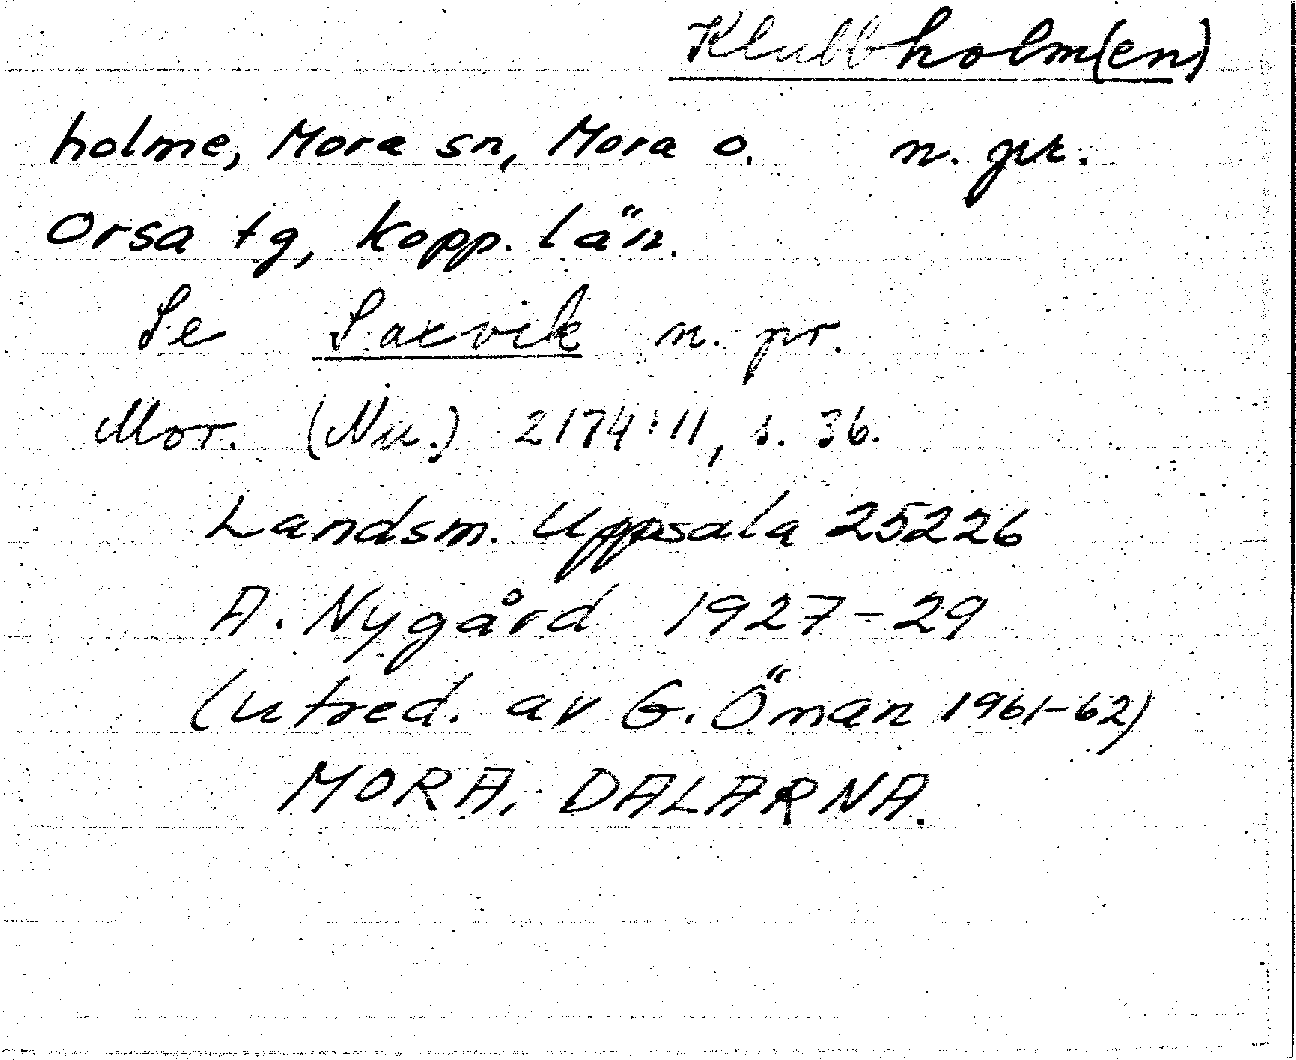 Klubbholm(en)
holme, Mora sn, Mora o. n. pr.
Orsa tg, Kopp. län.
Se Saxvik n. pr.
Mor. (Nu.) 2174:11, s. 36.
Landsm. Uppsala 25226
A. Nygård 1927-29
(utred. av G. Öman 1961-62)
MORA, DALARNA.